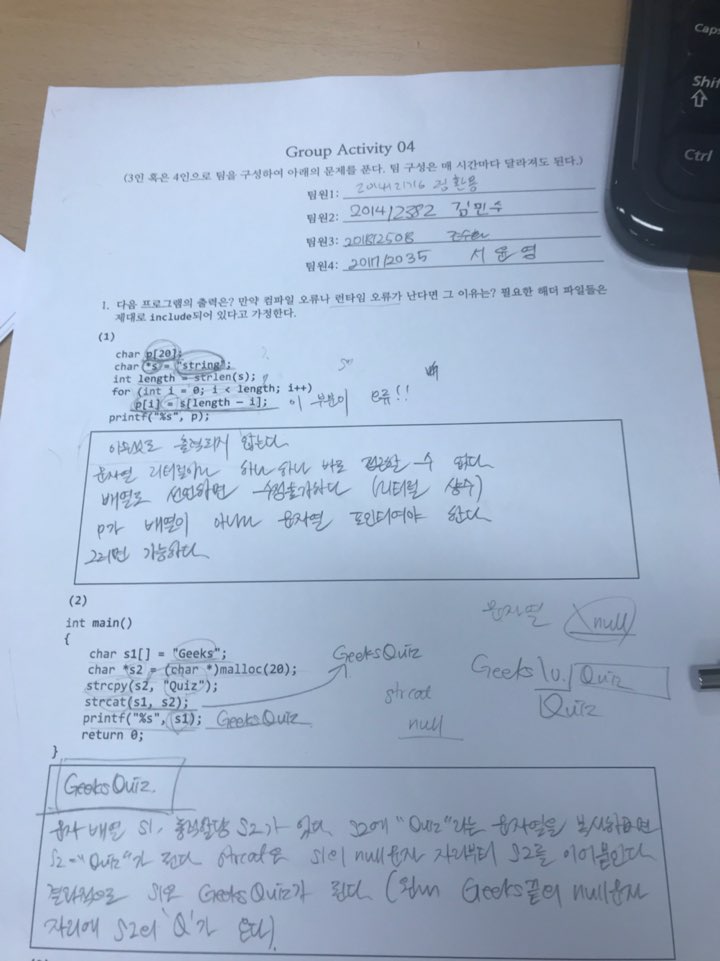 Caps
Shif
Ctrl
Group Activity 04
(3인 혹은 4인으로 팀을 구성하여 아래의 문제를 푼다. 팀 구성은 매 시간마다 달라져도 된다.)
팀원1: 김환용
팀원2: 201412382 김민수
팀원3: 201812508
팀원4: 201712035 서윤영
1. 다음 프로그램의 출력은? 만약 컴파일 오류나 런타임 오류가 난다면 그 이유는? 필요한 해더 파일들은
제대로 include되어 있다고 가정한다.
(1)
char p[20];
char *s = "string";
int length = strlen(s);
for (int i = 0; i < length; i++)
p[i] = s[length - i]; 이 부분이 오류!!
printf("%s", p);
아무것도 출력되지 않는다
문자열 리터럴이니 하나 하나 바로 접근할 수 없다
배열로 선언하면 수정불가하다 (리터럴 상수)
p가 배열이 아니니 문자열 포인터여야 한다
그러면 가능하다.
(2)
문자열 null
int main()
{
char s1[] = "Geeks";
char *s2 = (char *)malloc(20);
strcpy(s2, "Quiz");
strcat(s1, s2);
printf("%s", s1); GeeksQuiz
return 0;
}
GeeksQuiz
strcat
null
Geeks\0. Quiz
Quiz
GeeksQuiz.
문자 배열 s1, 동적할당 s2가 있다. s2에 "Quiz"라는 문자열을 복사하면
s2="Quiz"가 된다 strcat은 s1의 null문자 자리부터 s2를 이어붙인다
결과적으로 s1은 GeeksQuiz가 된다. (원래 Geeks끝의 null문자
자리에 s2의 'Q'가 온다).